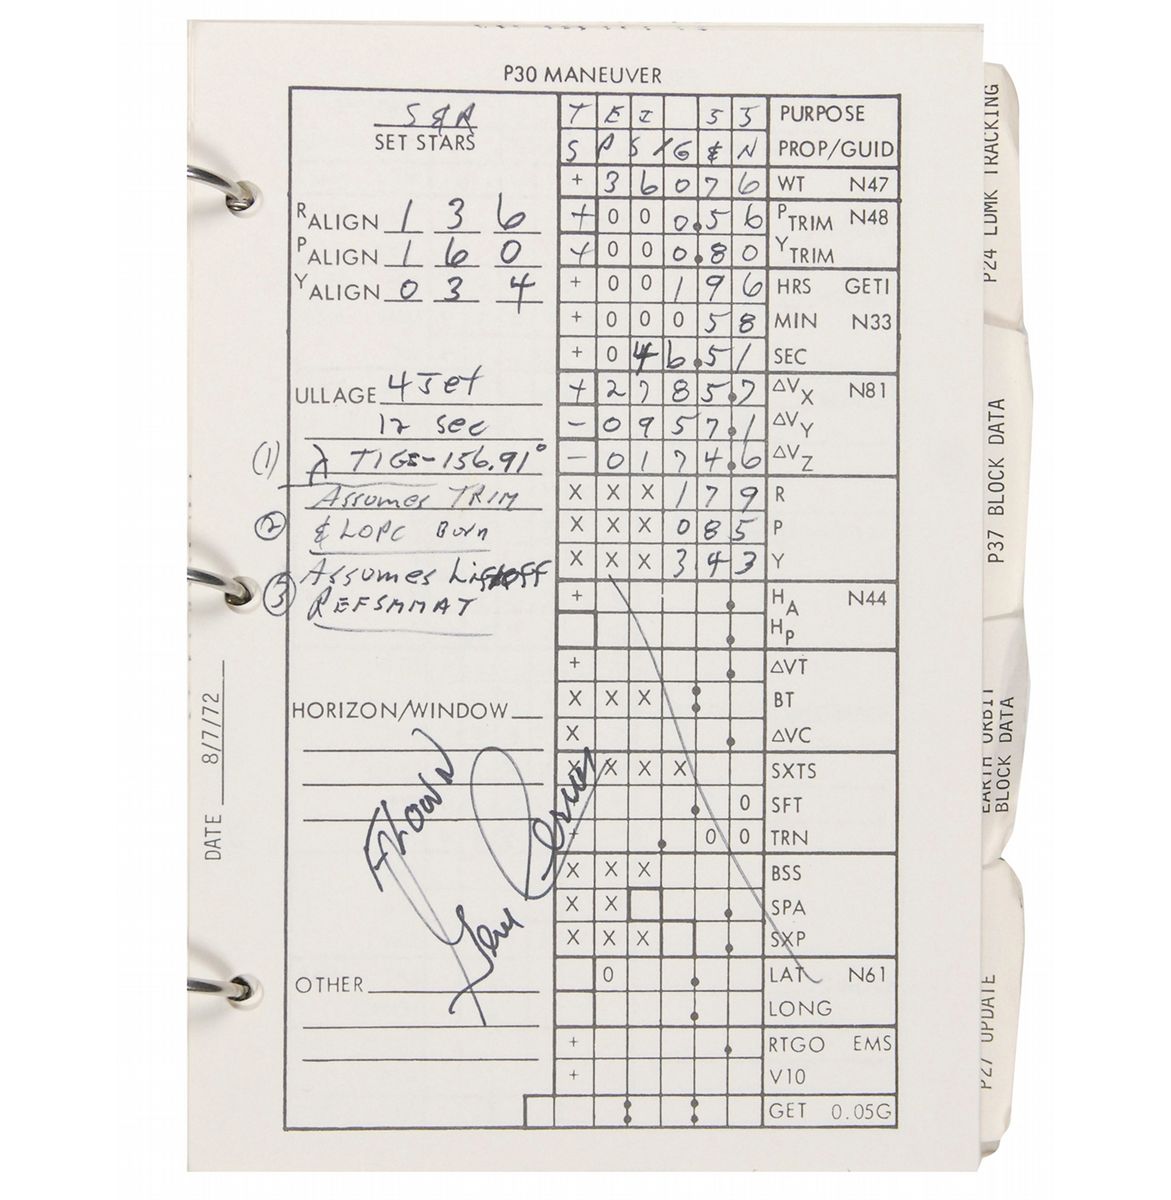 P30 MANEUVER
S & A
SET STARS
R ALIGN 1 3 6
P ALIGN 1 6 0
Y ALIGN 0 3 4
ULLAGE 4 Jet
12 sec
(1) λ TIG=-156.91°
Assumes TRIM
(2) & LOPC Burn
(3) Assumes Liftoff
REFSMMAT
HORIZON/WINDOW
FLOWN
Gene Cernan
OTHER
T E I 5 5 PURPOSE
S P S / G & N PROP/GUID
+ 3 6 0 7 6 WT N47
+ 0 0 0.5 6 P TRIM N48
+ 0 0 0.8 0 Y TRIM
+ 0 0 1 9 6 HRS GETI
+ 0 0 0 5 8 MIN N33
+ 0 4 6.5 1 SEC
+ 2 7 8 5.7 ΔVX N81
- 0 9 5 7.1 ΔVY
- 0 1 7 4.6 ΔVZ
X X X 1 7 9 R
X X X 0 8 5 P
X X X 3 4 3 Y
+ . HA N44
. HP
+ . ΔVT
X X X : BT
X . ΔVC
X X X X SXTS
. 0 SFT
+ . 0 0 TRN
X X X BSS
X X . SPA
X X X . SXP
0 . LAT N61
. LONG
+ . RTGO EMS
+ V10
: : GET 0.05G
DATE 8/7/72
P24 LDMK TRACKING
P37 BLOCK DATA
EARTH ORBIT
BLOCK DATA
P27 UPDATE